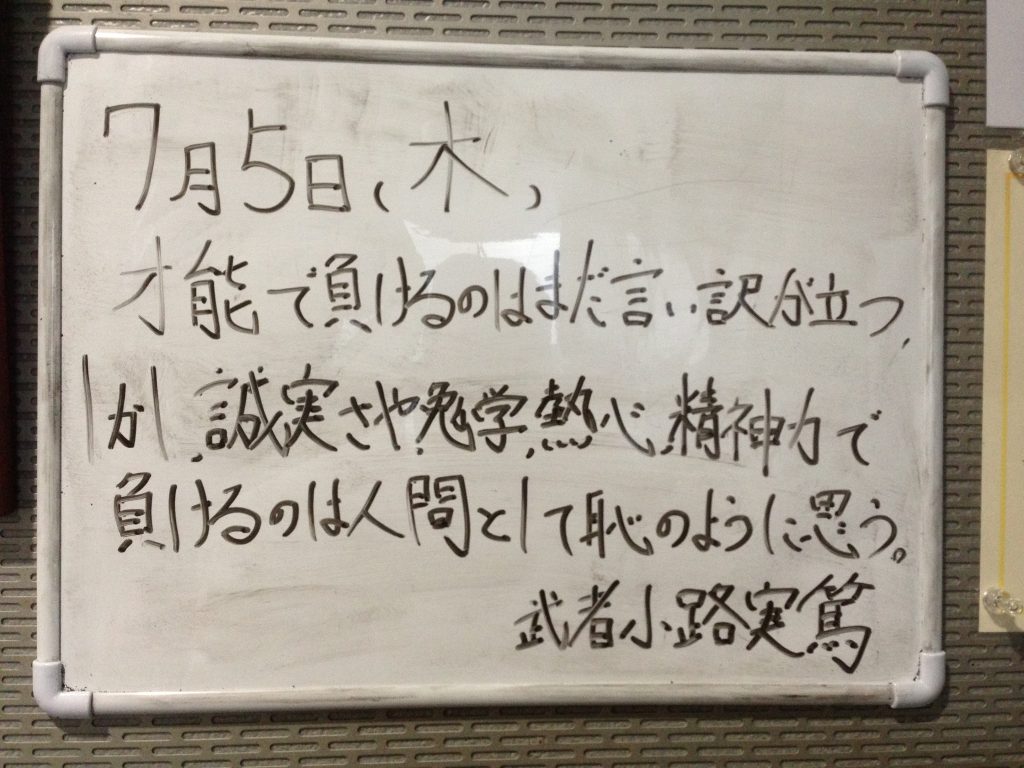 7月5日(木)
才能で負けるのはまだ言い訳が立つ、
しかし、誠実さや、勉学、熱心、精神力で
負けるのは人間として恥のように思う。
武者小路実篤